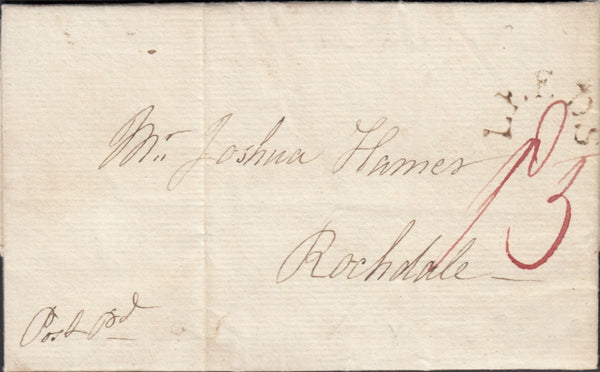 LEEDS
Mr. Joshua Hamer
P 3
Rochdale
Post pd